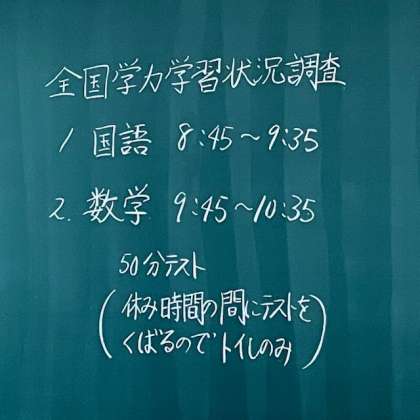 全国学力学習状況調査
1 国語 8:45〜9:35
2. 数学 9:45〜10:35
50分テスト
(休み時間の間にテストを
くばるのでトイレのみ)